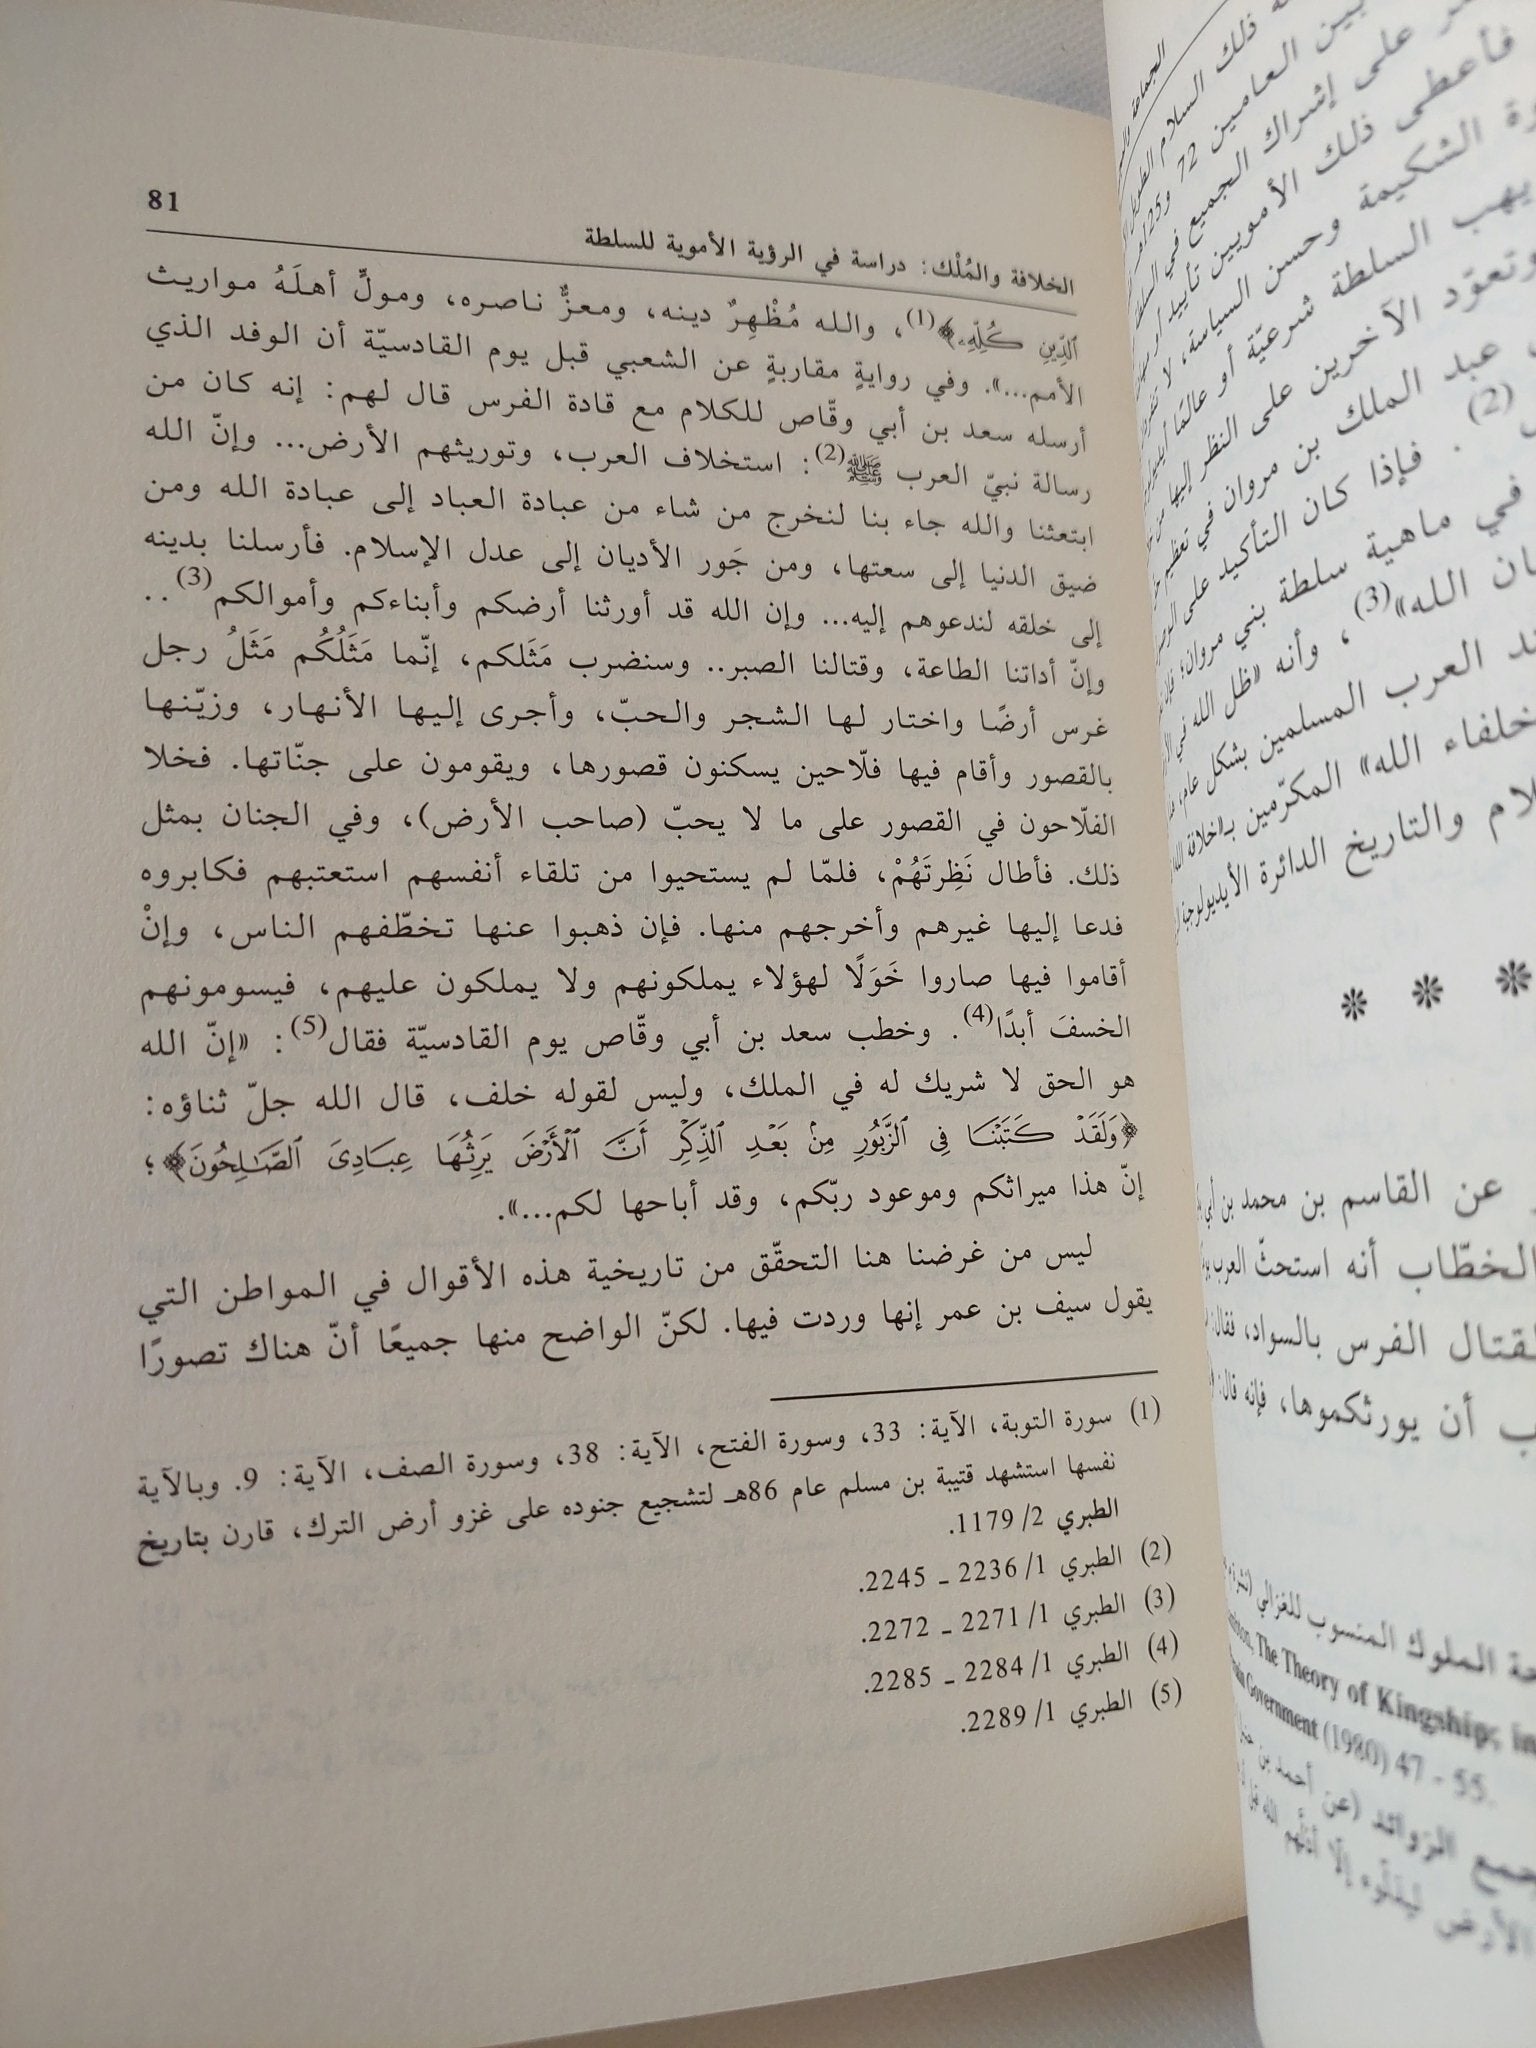 81
الخلافة والمُلْك: دراسة في الرؤية الأموية للسلطة
ٱلدِّينِ كُلِّهِۦ﴾(1)، والله مُظْهِرٌ دينه، ومعزٌّ ناصره، ومولٍّ أهلَهُ مواريث
الأمم...». وفي روايةٍ مقاربةٍ عن الشعبي قبل يوم القادسيّة أن الوفد الذي
أرسله سعد بن أبي وقّاص للكلام مع قادة الفرس قال لهم: إنه كان من
رسالة نبيّ العرب ﷺ(2): استخلاف العرب، وتوريثهم الأرض... وإنّ الله
ابتعثنا والله جاء بنا لنخرج من شاء من عبادة العباد إلى عبادة الله ومن
ضيق الدنيا إلى سعتها، ومن جَور الأديان إلى عدل الإسلام. فأرسلنا بدينه
إلى خلقه لندعوهم إليه... وإن الله قد أورثنا أرضكم وأبناءكم وأموالكم(3)..
وإنّ أداتنا الطاعة، وقتالنا الصبر.. وسنضرب مَثَلكم، إنّما مَثَلُكُم مَثَلُ رجل
غرس أرضًا واختار لها الشجر والحبّ، وأجرى إليها الأنهار، وزيّنها
بالقصور وأقام فيها فلّاحين يسكنون قصورها، ويقومون على جنّاتها. فخلا
الفلّاحون في القصور على ما لا يحبّ (صاحب الأرض)، وفي الجنان بمثل
ذلك. فأطال نَظِرتَهُمْ، فلمّا لم يستحيوا من تلقاء أنفسهم استعتبهم فكابروه
فدعا إليها غيرهم وأخرجهم منها. فإن ذهبوا عنها تخطّفهم الناس، وإنْ
أقاموا فيها صاروا خَوَلًا لهؤلاء يملكونهم ولا يملكون عليهم، فيسومونهم
الخسفَ أبدًا(4). وخطب سعد بن أبي وقّاص يوم القادسيّة فقال(5): «إنّ الله
هو الحق لا شريك له في الملك، وليس لقوله خلف، قال الله جلّ ثناؤه:
﴿وَلَقَدْ كَتَبْنَا فِى ٱلزَّبُورِ مِنۢ بَعْدِ ٱلذِّكْرِ أَنَّ ٱلْأَرْضَ يَرِثُهَا عِبَادِىَ ٱلصَّٰلِحُونَ﴾؛
إنّ هذا ميراثكم وموعود ربّكم، وقد أباحها لكم...».
ليس من غرضنا هنا التحقّق من تاريخية هذه الأقوال في المواطن التي
يقول سيف بن عمر إنها وردت فيها. لكنّ الواضح منها جميعًا أنّ هناك تصورًا
(1) سورة التوبة، الآية: 33، وسورة الفتح، الآية: 38، وسورة الصف، الآية: 9. وبالآية
نفسها استشهد قتيبة بن مسلم عام 86هـ لتشجيع جنوده على غزو أرض الترك، قارن بتاريخ
الطبري 2/ 1179.
(2) الطبري 1/ 2236 ـ 2245.
(3) الطبري 1/ 2271 ـ 2272.
(4) الطبري 1/ 2284 ـ 2285.
(5) الطبري 1/ 2289.
ذلك السلام الطويل
بين العامين 72 و125هـ
على إشراك الجميع في السلطة
فأعطى ذلك الأمويين تأييدًا
الشكيمة وحسن السياسة، لا
يهب السلطة شرعيّة أو
وتعوّد الآخرين على النظر إليها
عبد الملك بن مروان في تعظيم
(2). فإذا كان التأكيد على
في ماهية سلطة بني مروان؛
الله»(3)، وأنه «ظل الله في
العرب المسلمين بشكل عام،
خلفاء الله» المكرّمين بـ«خلافة الله
والتاريخ الدائرة الأيديولوجية
* * *
عن القاسم بن محمد بن أبي
الخطّاب أنه استحثّ العرب
لقتال الفرس بالسواد، فقال:
أن يورثكموها، فإنه قال:
الملوك المنسوب للغزالي
The Theory of Kingship; in
Government (1980) 47 - 55.
الزوائد (عن أحمد بن